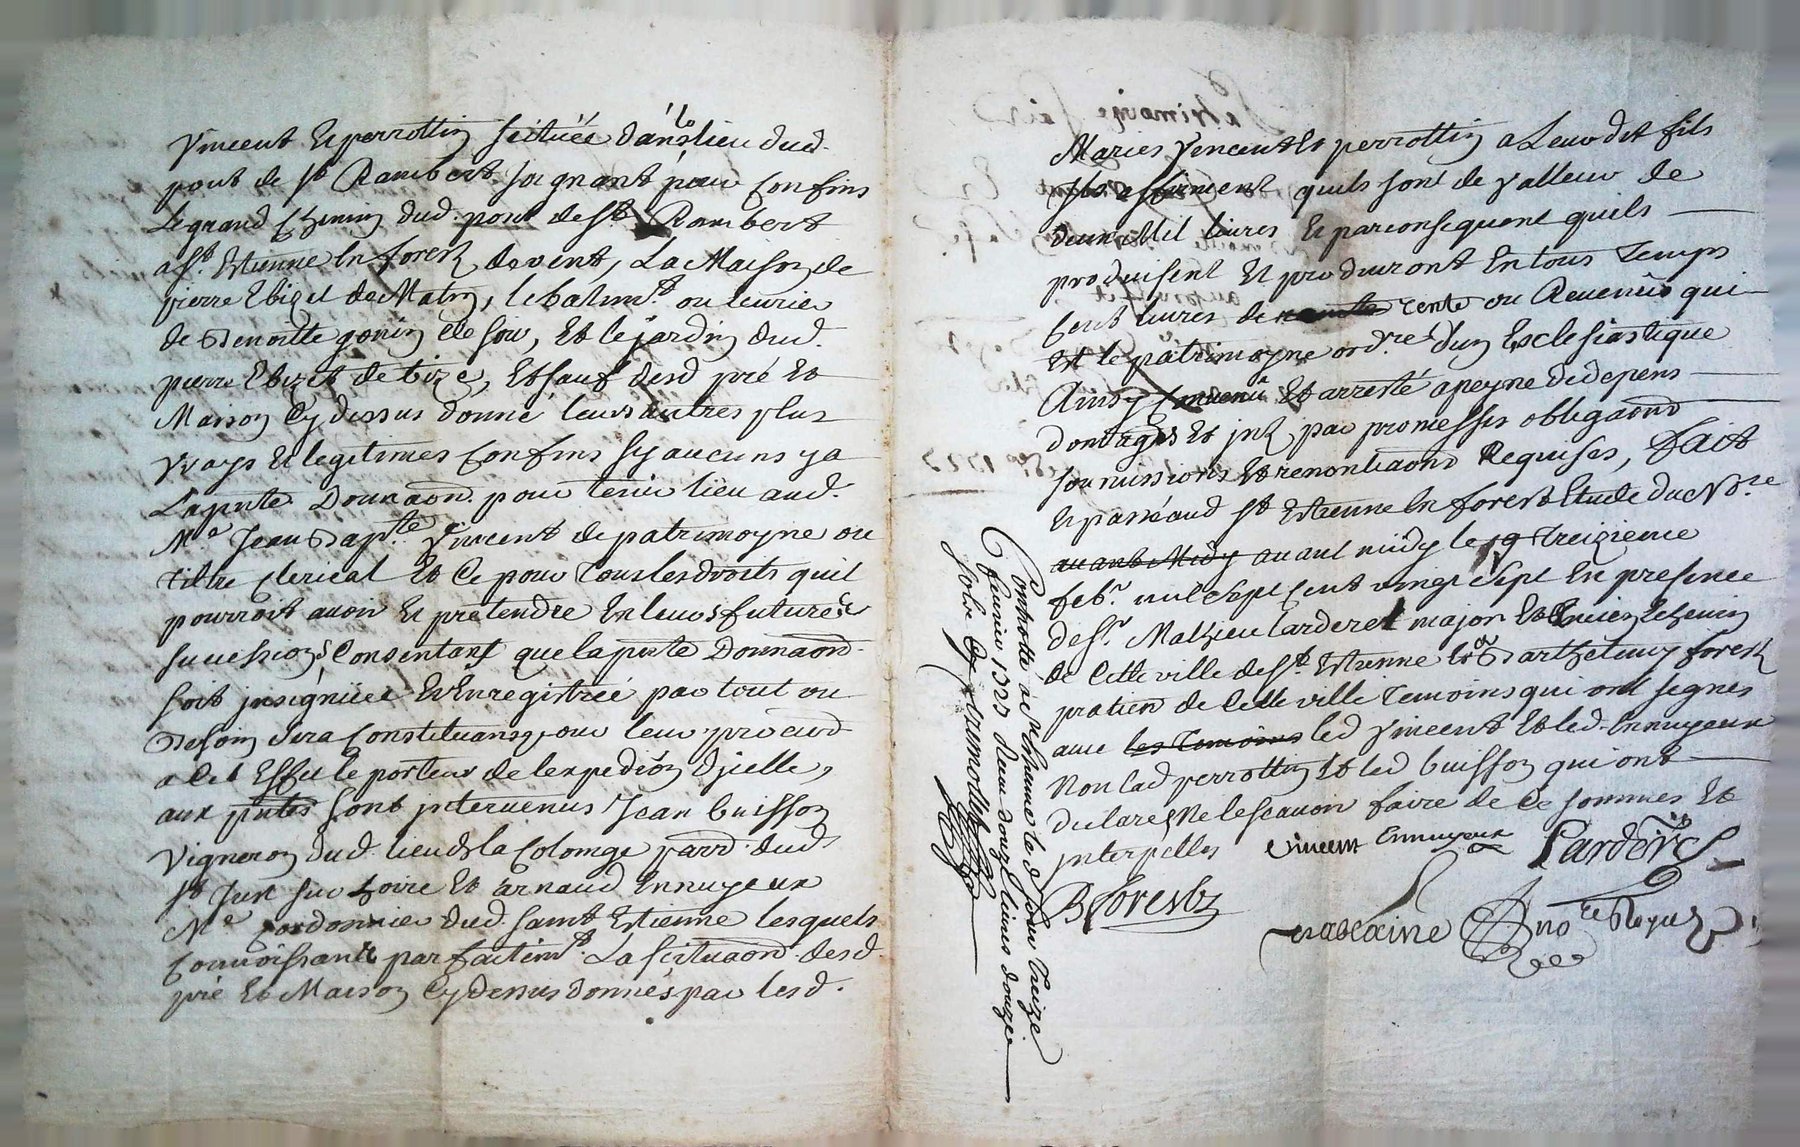 Vincent Et perrottin Scituée dans le lieu dud.
pont de St Rambert joignant pour Confins
Le grand Chemin dud. pont de St Rambert
a St Estienne En forest de vent, La Maison de
pierre de Matin, le batimt. ou
de Benoitte gonin de soir, Et le jardin dud.
pierre de bize, Et sauf desd pré Et
Maison Cy dessus donné leurs autres plus
vrays Et legitimes Confins sy aucuns y a
La pnte Donnaon. pour tenir lieu aud.
Me Jean Bapte Vincent de patrimoyne ou
tiltre clerical Et Ce pour Tous les droits quil
pourroit avoir Et pretendre En leurs futures
successions Consentant que la pnte Donnaon
soit jnsignüee Et Enregistrée par tout ou
Besoin sera Constituans pour leur procurd
a Cet Effet le porteur de lexpedion Djcelle,
aux pntes sont jntervenus Jean buisson
Vigneron dud. lieu de la Colonge parr. dud
St Just sur Loire Et arnaud Ennuyeux
Me Cordonnier dud. saint Estienne lesquels
Connoissants parfaitemt. La scituaon desd.
pré Et Maison Cy dessus donnés par lesd.
Maries Vincent Et perrottin a Leur dit fils
affirment quils sont de valleur de
deux Mil livres Et par consequent quils
produisent Et produiront En tous Temps
Cent livres de rente ou Revenûs qui
Est le patrimoyne ordre. dun Esclesiastique
Ainsy Convenû Et arresté a peyne de depens
domages Et jnt par promesses obligaons
soumissions Et renontiaons Requises, Fait
Et passé aud St Estienne En forest Etude du Nore
avant Midy avant midy le 19 Treizieme
febr. mil sept cent vingt sept En presence
de Sr. Mathieu Larderet major Et Ancien Echevin
de Cette ville de St. Estienne Et Barthelemy forest
praticn de Cette ville Temoins qui ont signes
avec les Temoins led Vincent Et led. Ennuyeux
Non lad perrottin Et led buisson qui ont
declares Ne le scavoir faire de Ce sommes Et
jnterpelles
Vincent Ennuyeux Larderet
B forest
no.re Royal
Controllé a St Estienne le d. jour Treize
fevrier 1727 deux douze livres douze